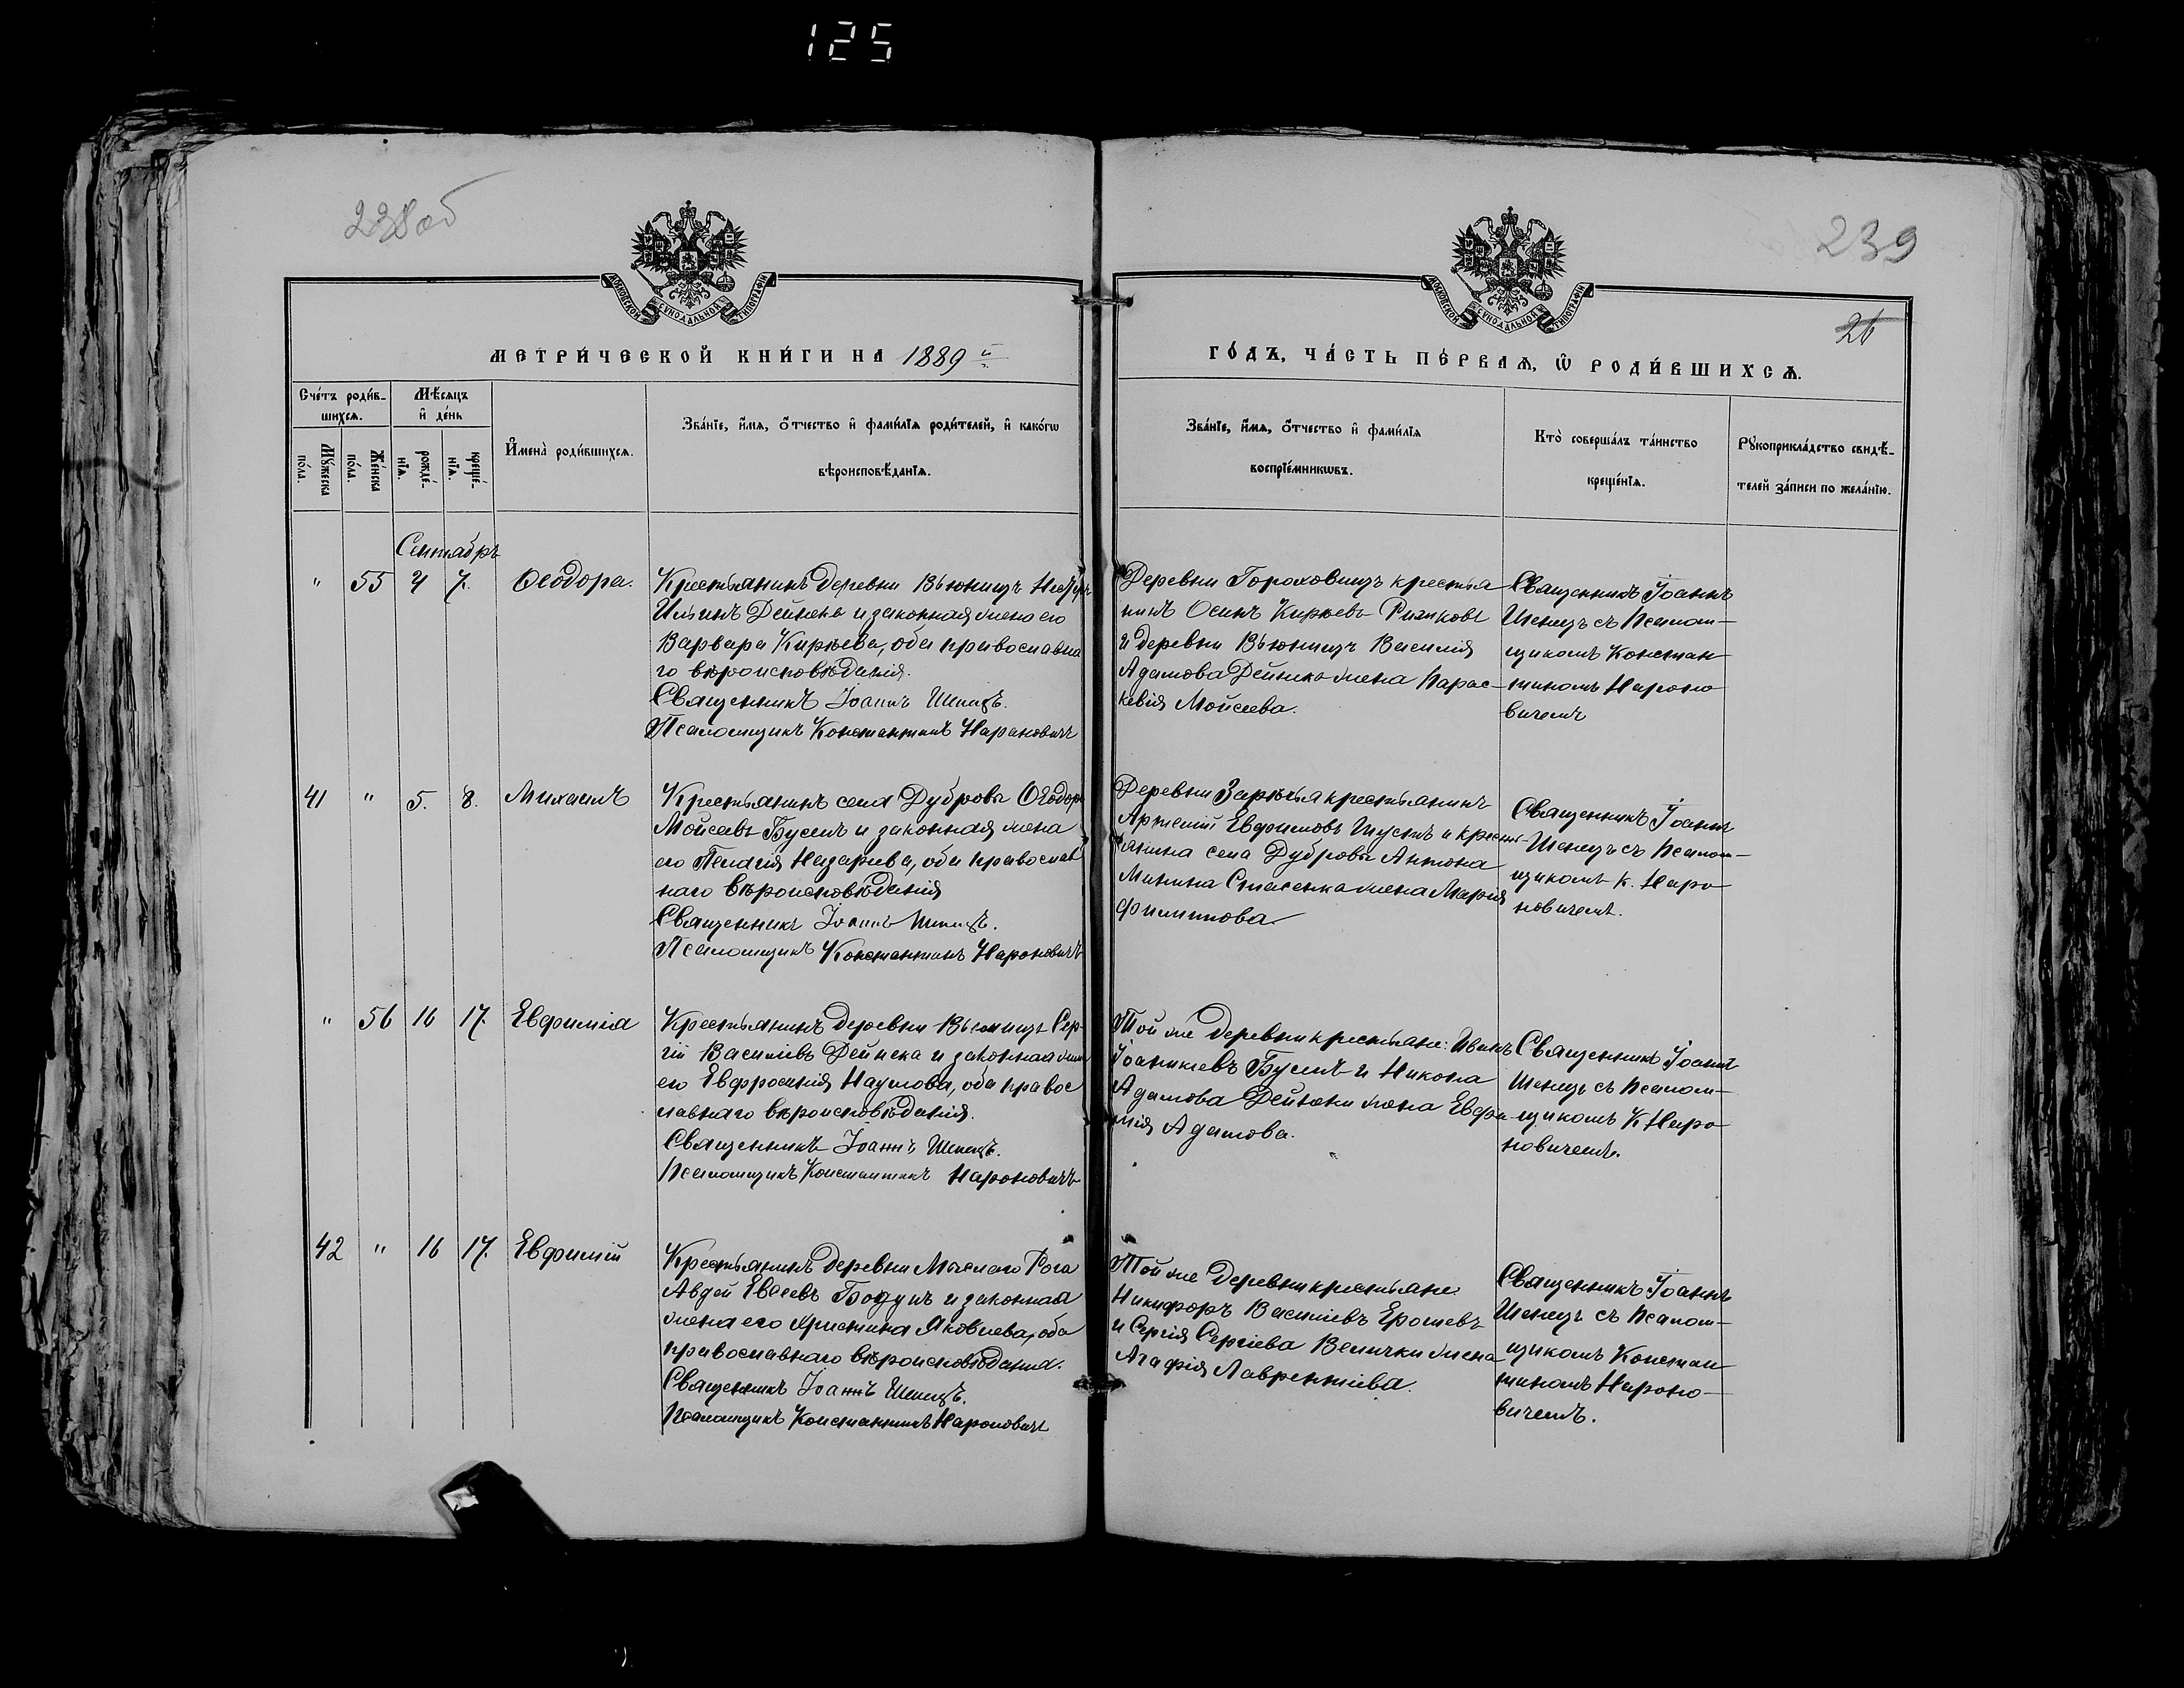 125
238 об
239
26
МОСКОВСКОЙ СУНОДАЛЬНОЙ ТИПОГРАФІИ
МОСКОВСКОЙ СУНОДАЛЬНОЙ ТИПОГРАФІИ
МЕТРИ́ЧЕСКОЙ КНИ́ГИ НА 1889 й
ГО́ДЪ, ЧА́СТЬ ПЕ́РВАѦ, Ѡ҆ РОДИ́ВШИХСѦ.
Сче́тъ роди́в-
шихсѧ.
Мѣ́сѧцъ
и҆ де́нь
Мꙋ́жеска
по́ла.
Же́нска
по́ла.
рожде́-
нїѧ.
креще́-
нїѧ.
И҆мена̀ роди́вшихсѧ.
Зва́нїе, и҆́мѧ, о҆́тчество и҆ фами́лїѧ роди́телей, и҆ како́гѡ
вѣроисповѣ́данїѧ.
Зва́нїе, и҆́мѧ, о҆́тчество и҆ фами́лїѧ
воспрїе́мникѡвъ.
Кто̀ соверша́лъ та́инство
креще́нїѧ.
Рꙋкоприкла́дство свидѣ́-
телей за́писи по жела́нїю.
Сентябрь
" 55 4 7. Ѳеодора.
Крестьянинъ деревни Вьюнищъ
Ильинъ Дейнека и законная жена его
Варвара Кирѣева, оба православна
го вѣроисповѣданія.
Священникъ Іоаннъ Шепецъ.
Псаломщикъ Константинъ Нароновичъ
Деревни Гороховищъ крестья
нинъ Осипъ Кирѣевъ
и деревни Вьюнищъ Василія
Адамова Дейнека жена Парас-
кевія Мойсеева.
Священникъ Іоаннъ
Шепецъ съ псалом-
щикомъ Констан
тиномъ Нароно
вичемъ
41 " 5. 8. Михаилъ
Крестьянинъ села Дубровы Ѳеодоръ
Мойсеевъ Бусел и законная жена
его Пелагія Назарьева, оба православ
наго вѣроисповѣданія
Священникъ Іоаннъ Шепецъ.
Псаломщикъ Константинъ Нароновичъ
Деревни Зарѣчья крестьянинъ
Артемій Евфимовъ и кресть
янина села Дубровы Антона
Минина Стасенка жена Марія
Филиппова.
Священникъ Іоаннъ
Шепецъ съ псалом-
щикомъ К. Наро
новичемъ.
" 56 16 17. Евфимія
Крестьянинъ деревни Вьюнищъ Сер-
гій Василіевъ Дейнека и законная жена
его Евфросинія Наумова, оба правос
лавнаго вѣроисповѣданія.
Священникъ Іоаннъ Шепецъ.
Псаломщикъ Константинъ Нароновичъ
Той же деревни крестьяне: Иванъ
Іоанникіевъ Бусел и Никона
Адамова Дейнеки жена Евфи
мія Адамова.
Священникъ Іоаннъ
Шепецъ съ псалом-
щикомъ К Наро
новичемъ.
42 " 16 17. Евфимій
Крестьянинъ деревни Рога
Авдей Евсеевъ Бодунъ и законная
жена его Христина Яковлева, оба
православнаго вѣроисповѣданія.
Священникъ Іоаннъ Шепецъ.
Псаломщикъ Константинъ Нароновичъ
Той же деревни крестьяне:
Никифоръ Василіевъ Ерошевъ
и Сергія Сергіева Велички жена
Агафія Лаврентіева.
Священникъ Іоаннъ
Шепецъ съ псалом-
щикомъ Констан
тиномъ Нароно-
вичемъ.